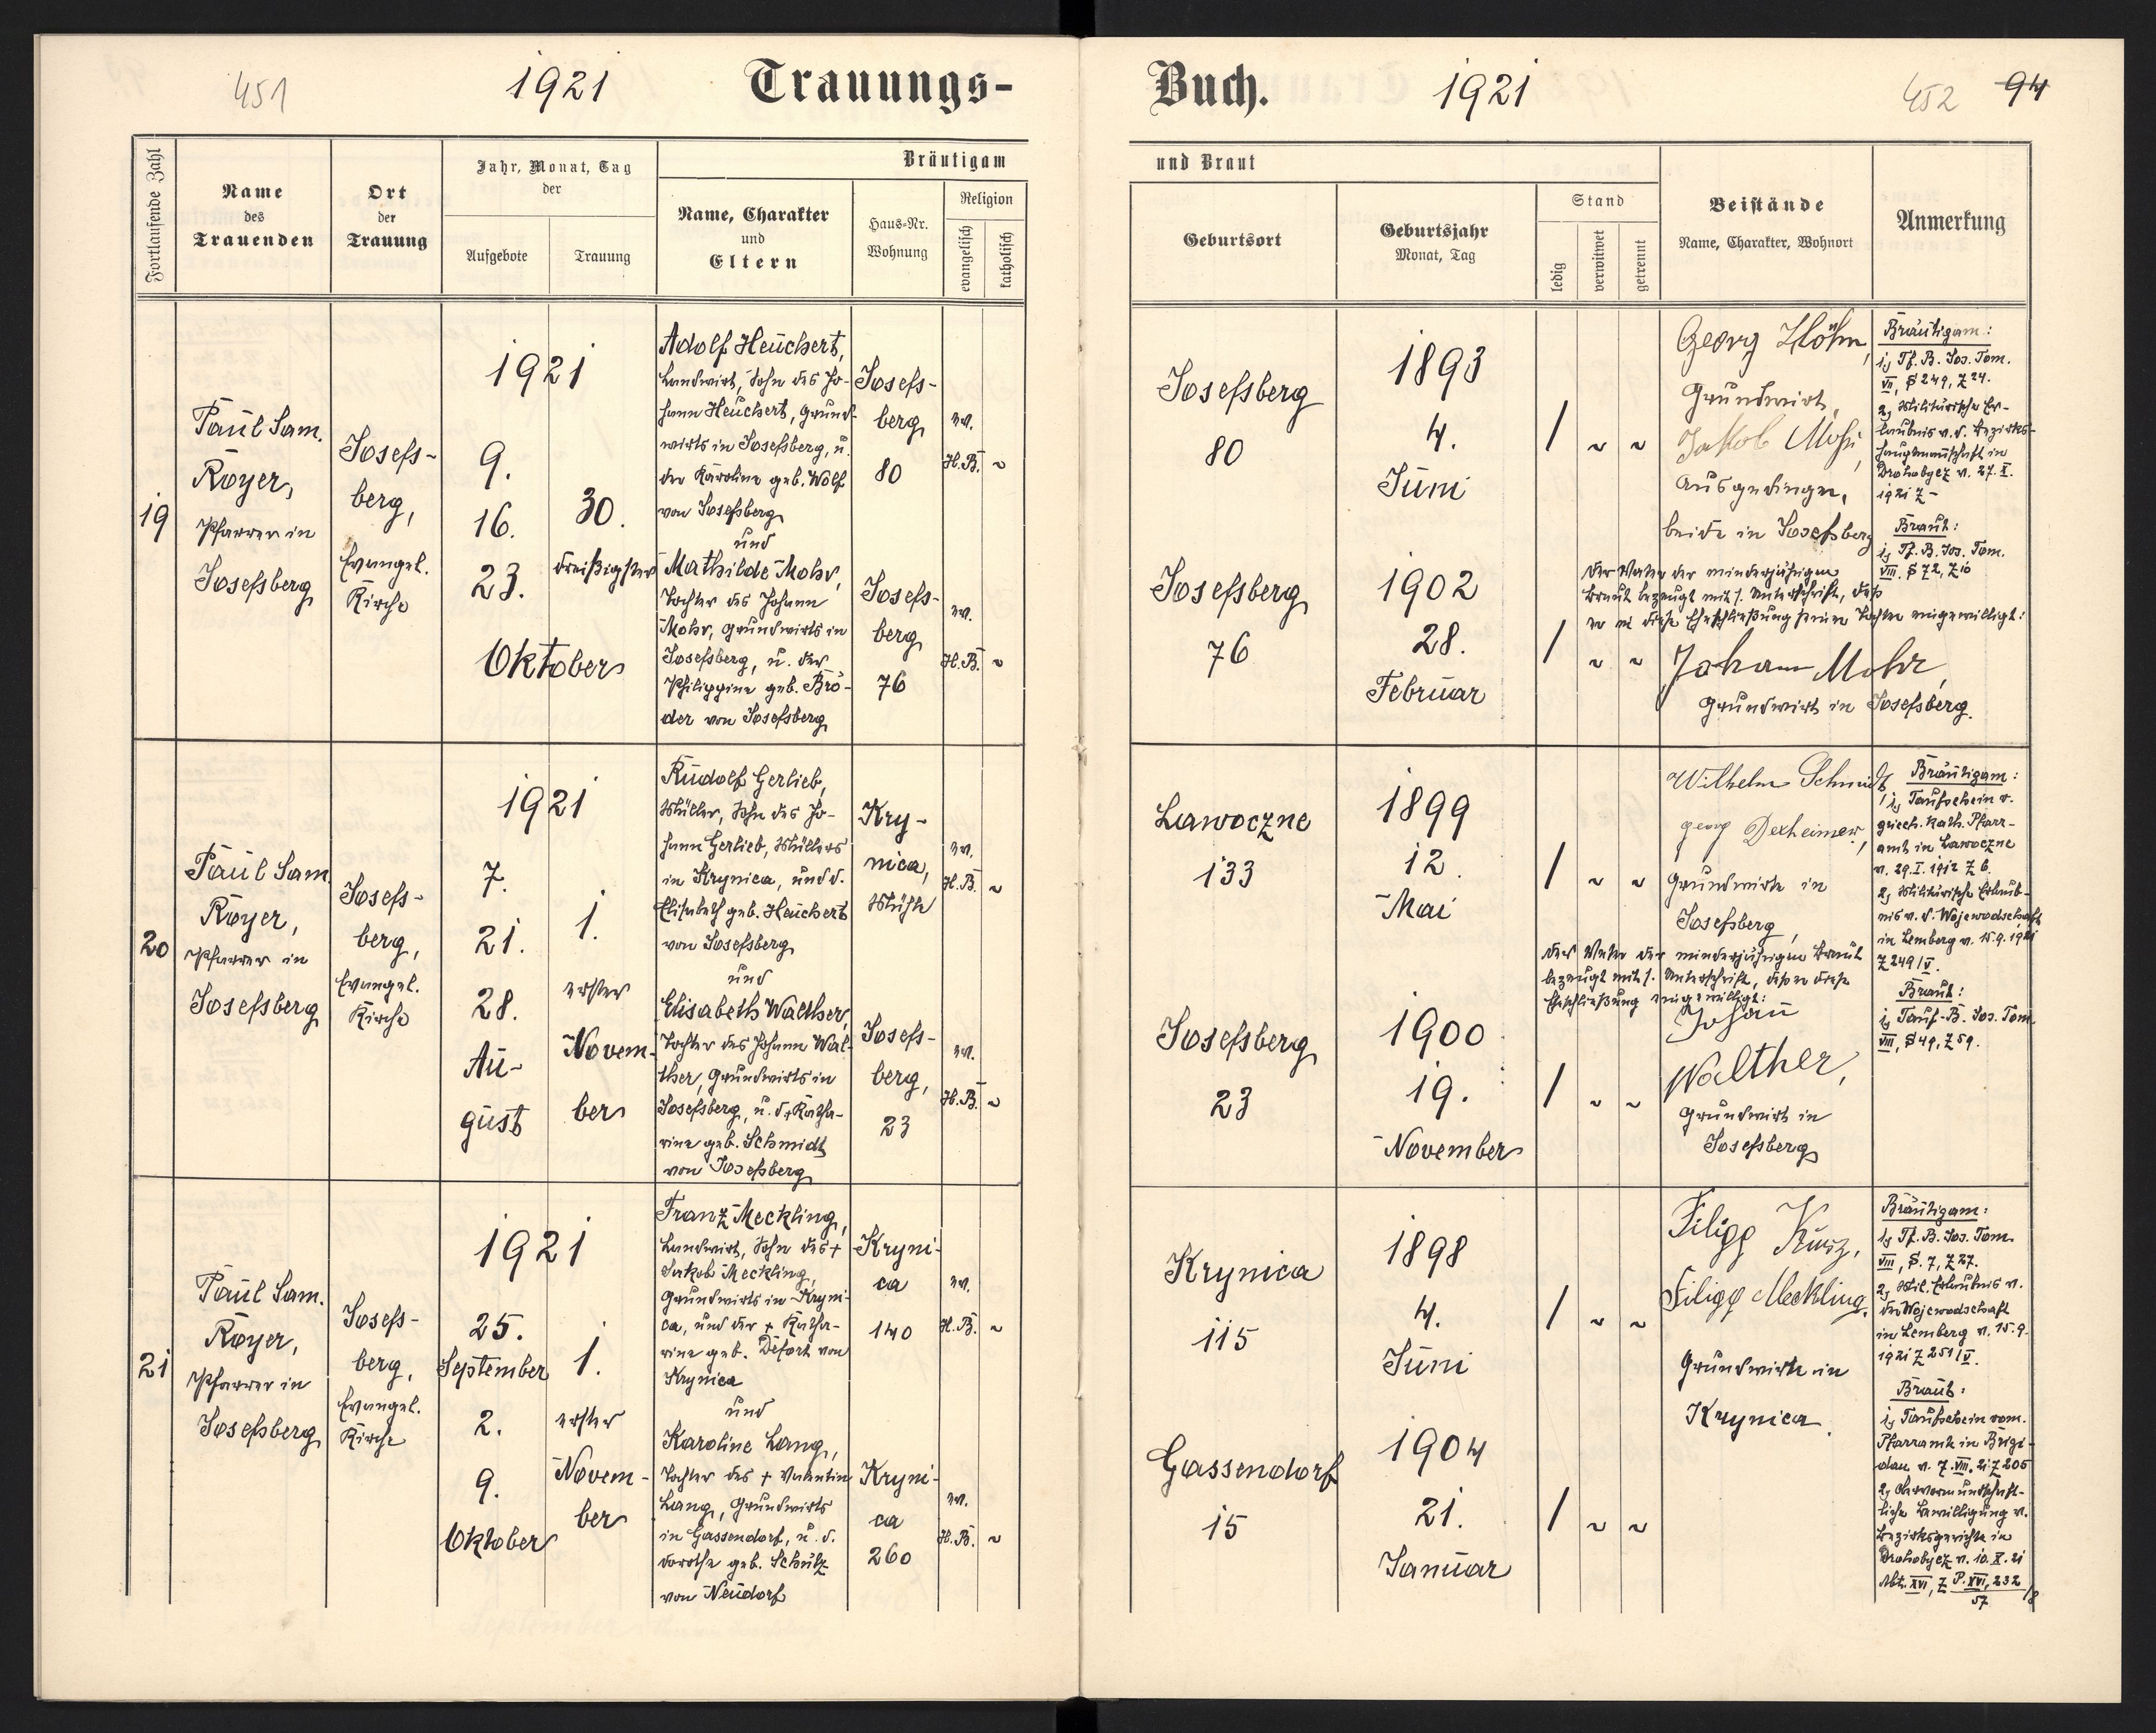 451
1921
Trauungs-
Fortlaufende Zahl
Name
des
Trauenden
Ort
der
Trauung
Jahr, Monat, Tag
der
Aufgebote
Trauung
Bräutigam
Name, Charakter
und
Eltern
Haus-Nr.
Wohnung
Religion
evangelisch
katholisch
19
Paul Sam.
Royer,
Pfarrer in
Josefsberg
Josefs-
berg,
Evangel.
Kirche
1921
9.
16.
23.
30.
dreißigster
Oktober
Adolf Heuchert,
Landwirt, Sohn des Jo-
hann Heuchert, Grund-
wirts in Josefsberg, u.
der Karoline geb. Wolf
von Josefsberg
und
Mathilde Mohr,
Tochter des Johann
Mohr, Grundwirts in
Josefsberg, u. der
Philippine geb. Brö-
der von Josefsberg
Josefs-
berg
80
ev.
H.B. ~
Josefs-
berg
76
ev.
H.B. ~
20
Paul Sam.
Royer,
Pfarrer in
Josefsberg
Josefs-
berg,
Evangel.
Kirche
1921
7.
21.
28.
Au-
gust
1.
erster
Novem-
ber
Rudolf Gerlieb,
Müller, Sohn des Jo-
hann Gerlieb, Müllers
in Krynica, und d.
Elisabeth geb. Heuchert
von Josefsberg
und
Elisabeth Walther,
Tochter des Johann Wal-
ther, Grundwirts in
Josefsberg, u. d. Katha-
rine geb. Schmidt
von Josefsberg
Kry-
nica,
Mühle
ev.
H.B. ~
Josefs-
berg,
23
ev.
H.B. ~
21
Paul Sam.
Royer,
Pfarrer in
Josefsberg
Josefs-
berg,
Evangel.
Kirche
1921
25.
September
2.
9.
Oktober
1.
erster
Novem-
ber
Franz Meckling,
Landwirt, Sohn des +
Jakob Meckling,
Grundwirts in Kryni-
ca, und der + Katha-
rine geb. Defort von
Krynica
und
Karoline Lang,
Tochter des + Valentin
Lang, Grundwirts
in Gassendorf, u. d.
Dorothe geb. Schulz
von Neudorf
Kryni-
ca
140
ev.
H.B. ~
Kryni-
ca
260
ev.
H.B. ~
Buch.
1921
452
94
und Braut
Geburtsort
Geburtsjahr
Monat, Tag
Stand
ledig
verwitwet
getrennt
Beistände
Name, Charakter, Wohnort
Anmerkung
Josefsberg
80
1893
4.
Juni
/ ~ ~
Georg Höhn,
Grundwirt,
Jakob
Ausgedinger,
beide in Josefsberg
Bräutigam:
1, Tf. B. Jos. Tom.
VII, S 249, Z 24.
2, Militärische Er-
laubnis v. d. Bezirks-
hauptmannschaft in
Drohobycz v. 27. X.
1921 Z -
Braut:
1, Tf. B. Jos. Tom.
VIII. S 72, Z 10
Josefsberg
76
1902
28.
Februar
/ ~ ~
Der Vater der minderjährigen
Braut bezeugt mit s. Unterschrift, daß
er in diese Eheschließung seiner Tochter eingewilligt:
Johann Mohr,
Grundwirt in Josefsberg.
Lawoczne
133
1899
12.
Mai
/ ~ ~
Wilhelm Schmidt,
Georg Dexheimer,
Grundwirte in
Josefsberg,
Bräutigam:
1, Taufschein v.
griech. kath. Pfarr-
amt in Lawoczne
v. 29. I. 1912 Z 6.
2, Militärische Erlaub-
nis v. d. Wojewodschaft
in Lemberg v. 15.9.1921
Z 249/V.
Braut:
1, Tauf-B. Jos. Tom.
VIII, S 49, Z 59.
Der Vater der minderjährigen Braut
bezeugt mit s. Unterschrift, daß er in diese
Eheschließung eingewilligt:
Josefsberg
23
1900
19.
November
/ ~ ~
Johann
Walther,
Grundwirt in
Josefsberg
Krynica
115
1898
4.
Juni
/ ~ ~
Filipp Kurz,
Filipp Meckling,
Grundwirte in
Krynica.
Bräutigam:
1, Tf. B. Jos. Tom.
VIII, S. 7, Z 27.
2, Mil. Erlaubnis v.
der Wojewodschaft
in Lemberg v. 15.9.
1921 Z 251/V.
Braut:
1, Taufschein vom.
Pfarramte in Brigi-
dau v. 7. VIII. 21 Z 205
2, Obervormundschaft-
liche Bewilligung v.
Bezirksgerichte in
Drohobycz v. 10. X. 21
Abt. XVI, Z P. XVI, 232/8
57
Gassendorf
15
1904
21.
Januar
/ ~ ~